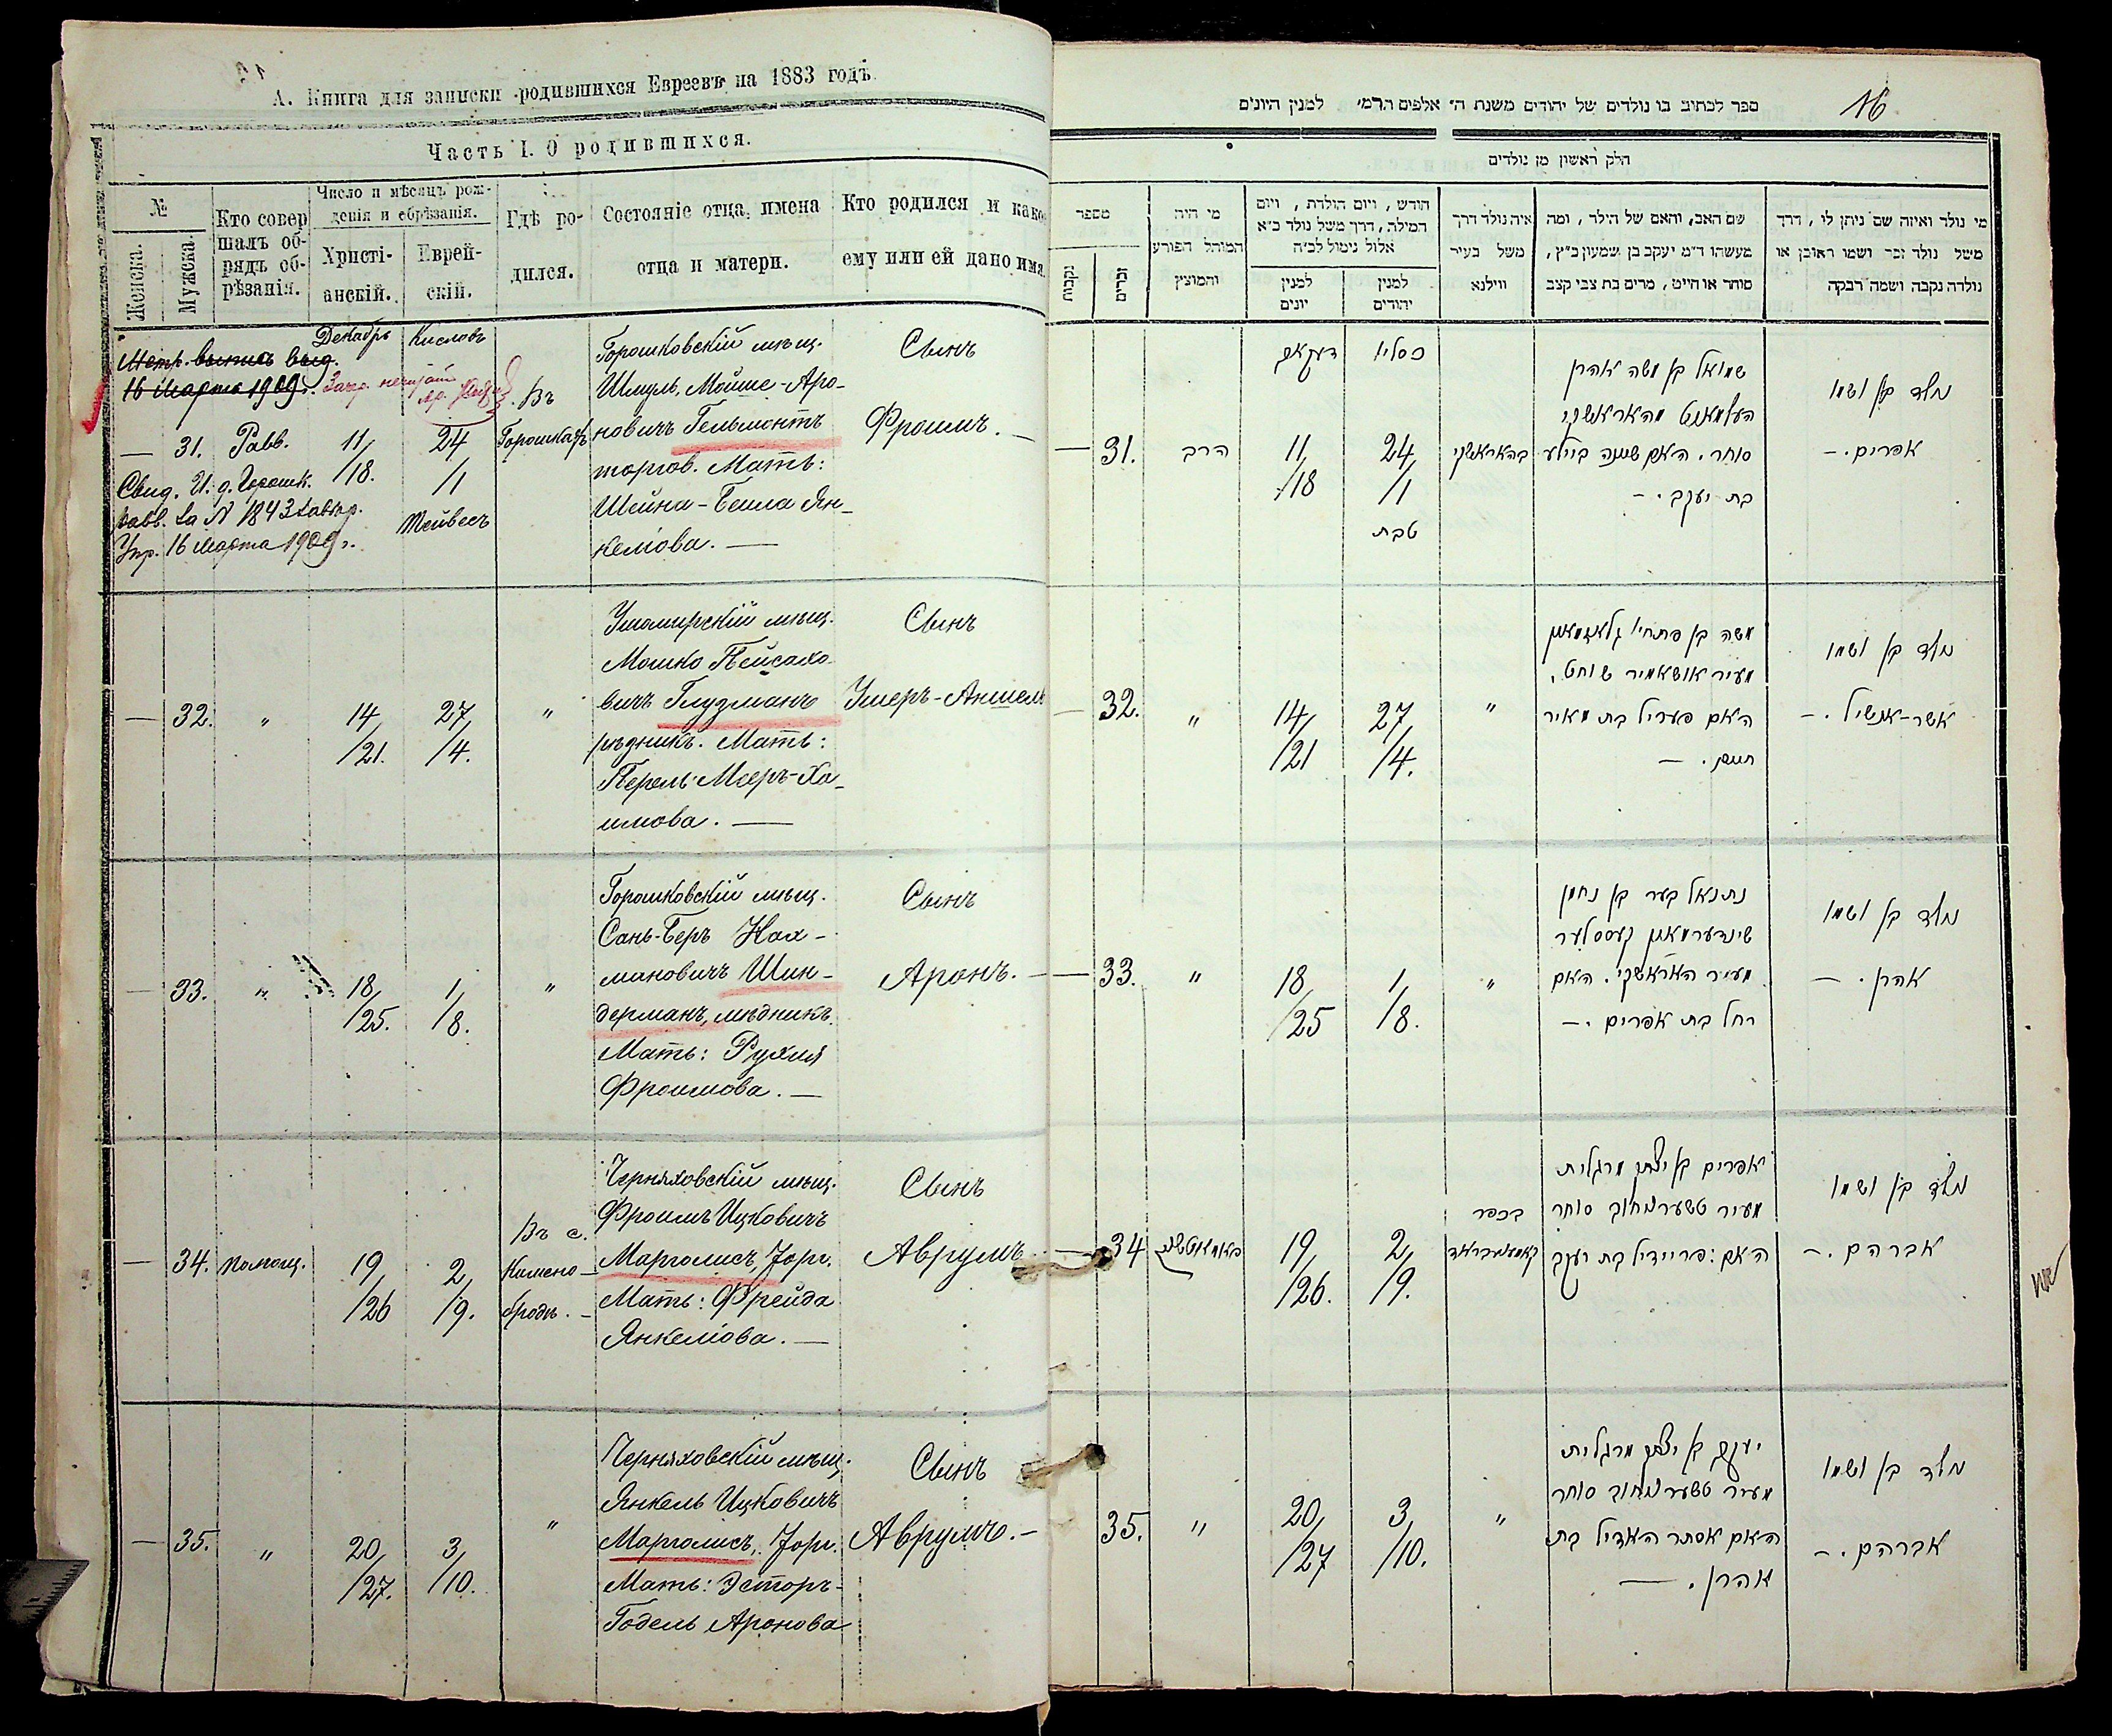 А. Книга для записки родившихся Евреевъ на 1883 годъ.
Часть I. О родившихся.
№
Женска.
Мужска.
Кто совер
шалъ об-
рядъ об-
рѣзанія.
Число и мѣсяцъ рож-
денія и обрѣзанія.
Христі-
анскій.
Еврей-
скій.
Гдѣ ро-
дился.
Состояніе отца, имена
отца и матери.
Кто родился и како-
ему или ей дано имя.
Декабрь Кисловъ
Метр. выпись выд.
16 Марта 1909 г.
— 31. Равв. 11/18. 24/1
Тейвесъ
Свид. И. д. Горошк.
равв. за № 1843 завѣр.
Упр. 16 Марта 1909 г.
Въ
Горошкахъ
Горошковскій мѣщ.
Шмуль, Мойше-Аро-
новичъ Гельмонтъ
торгов. Мать:
Шейна-Бейла Ян-
келіова. —
Сынъ
Фроимъ. —
— 32. " 14/21. 27/4. "
Ушомирскій мѣщ.
Мошко Пейсахо-
вичъ Глузманъ
рѣзникъ. Мать:
Перель Меръ-Ха-
имова. —
Сынъ
Ушеръ-Аншель
— 33. " 18/25. 1/8. "
Горошковскій мѣщ.
Сань-Беръ Нах-
мановичъ Шин-
дерманъ, мѣдникъ.
Мать: Рухля
Фроимова. —
Сынъ
Аронъ. —
— 34. помощ. 19/26 2/9.
Въ с.
Камено-
бродъ. —
Черняховскій мѣщ.
Фроимъ Ицковичъ
Марголисъ, Торг.
Мать: Фрейда
Янкеліова. —
Сынъ
Аврумъ. —
— 35. " 20/27. 3/10. "
Черняховскій мѣщ.
Янкель Ицковичъ
Марголисъ, Торг.
Мать: Эстеръ-
Годель Аронова
Сынъ
Аврумъ. —
16
ספר לכתוב בו נולדים של יהודים משנת ה׳ אלפים הרמ׳ למנין היונים
חלק ראשון מן נולדים
מספר
נקבות
זכרים
מי היה
המוהל הפורע
והמוצץ
חודש, ויום הולדת, ויום
המילה, דרך משל נולד כ״א
אלול נימול לכ״ה
למנין
יונים
למנין
יהודים
איה נולד דרך
משל בעיר
ווילנא
שם האב, והאם של הילד, ומה
מעשהו ד״מ יעקב בן שמעון כ״ץ,
סוחר או חייט, מרים בת צבי קצב
מי נולד ואיזה שם ניתן לו, דרך
משל נולד זכר ושמו ראובן או
נולדה נקבה ושמה רבקה
דעקאב כסליו
— 31. הרב 11/18 24/1
טבת
בהאראשקי
שמואל בן משה אהרן
העלמאנט מהאראשקי
סוחר. האם שיינה ביילע
בת יעקב. —
נולד בן ושמו
אפרים. —
— 32. " 14/21 27/4. "
משה בן פתחי׳ גלאזמאן
מעיר אושאמיר שוחט,
האם פעריל בת מאיר
חיים. —
נולד בן ושמו
אשר-אנשיל. —
— 33. " 18/25 1/8. "
נתנאל בער בן נחמן
שינדערמאן קעססלער
מעיר האראשקי. האם
רחל בת אפרים. —
נולד בן ושמו
אהרן. —
— 34 19/26. 2/9.
בכפר
קאמענבראד
אפרים בן יצחק מרגלית
מעיר טשערנחוב סוחר
האם: פריידיל בת יעקב
נולד בן ושמו
אברהם. —
35. " 20/27 3/10. "
יעקב בן יצחק מרגלית
מעיר טשערנחוב סוחר
האם אסתר האדיל בת
אהרן. —
נולד בן ושמו
אברהם. —